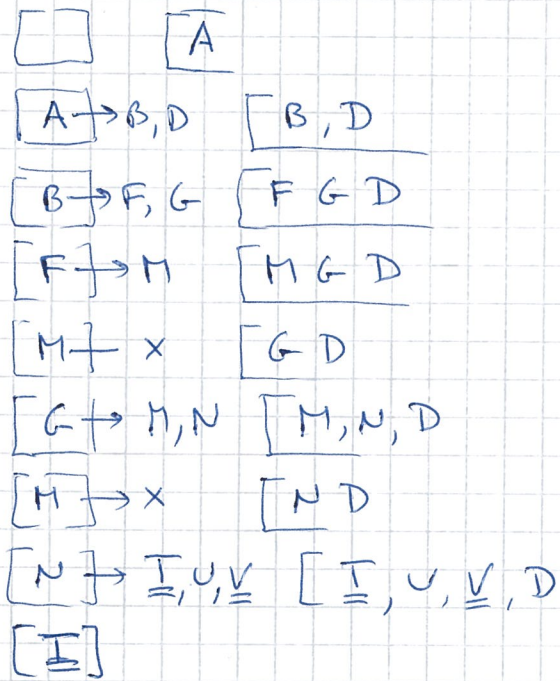 A
A → B, D B, D
B → F, G F G D
F → M M G D
M × G D
G → M, N M, N, D
M → × N D
N → I, U, V I, U, V, D
I